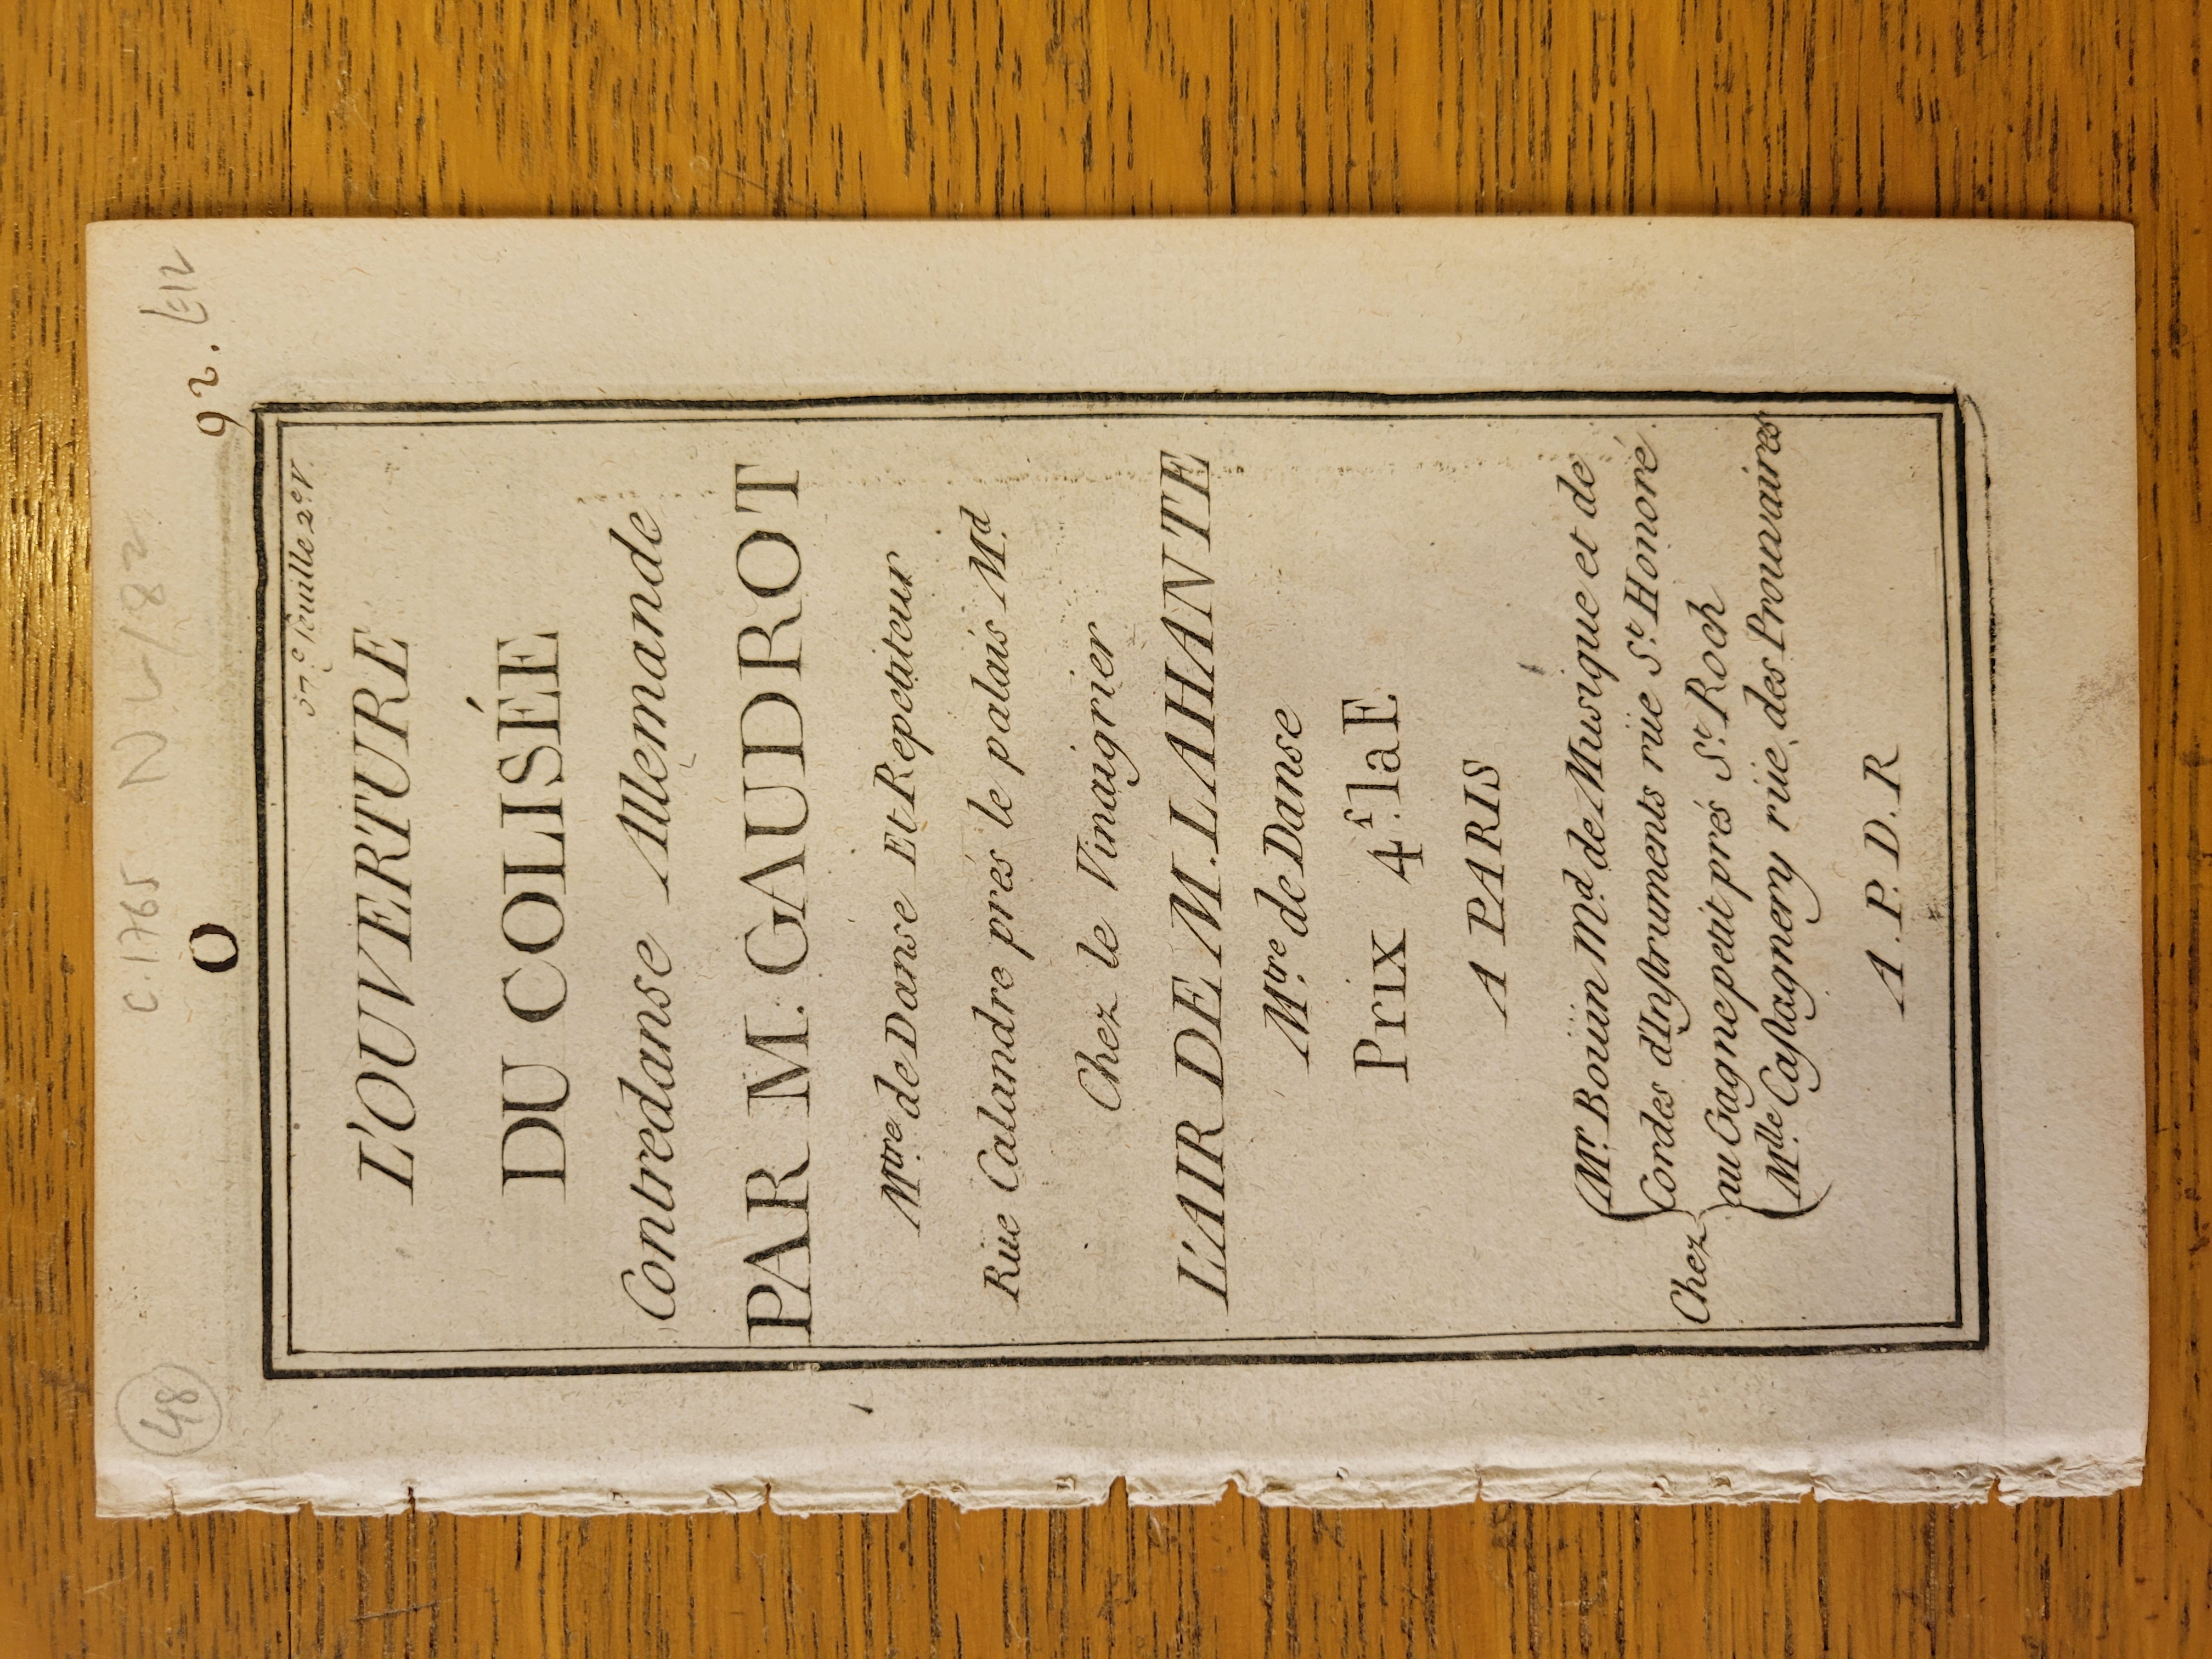 48
c. 1765
O
92.
37.e feuille 2.e V.
L'OUVERTURE
DU COLISÉE
Contredanse Allemande
PAR M. GAUDROT
M.tre de Danse Et Repetiteur
Rüe Calandre prés le palais M.d
Chez le Vinaigrier
L'AIR DE M. LAHANTE
M.tre de Danse
Prix 4.s la E
A PARIS
Chez
M.r Boüin M.d de Musique et de
Cordes d'Instruments rüe S.t Honoré
au Gagne petit prés S.t Roch
M.lle Castagnery rüe des Prouvaires
A. P. D. R